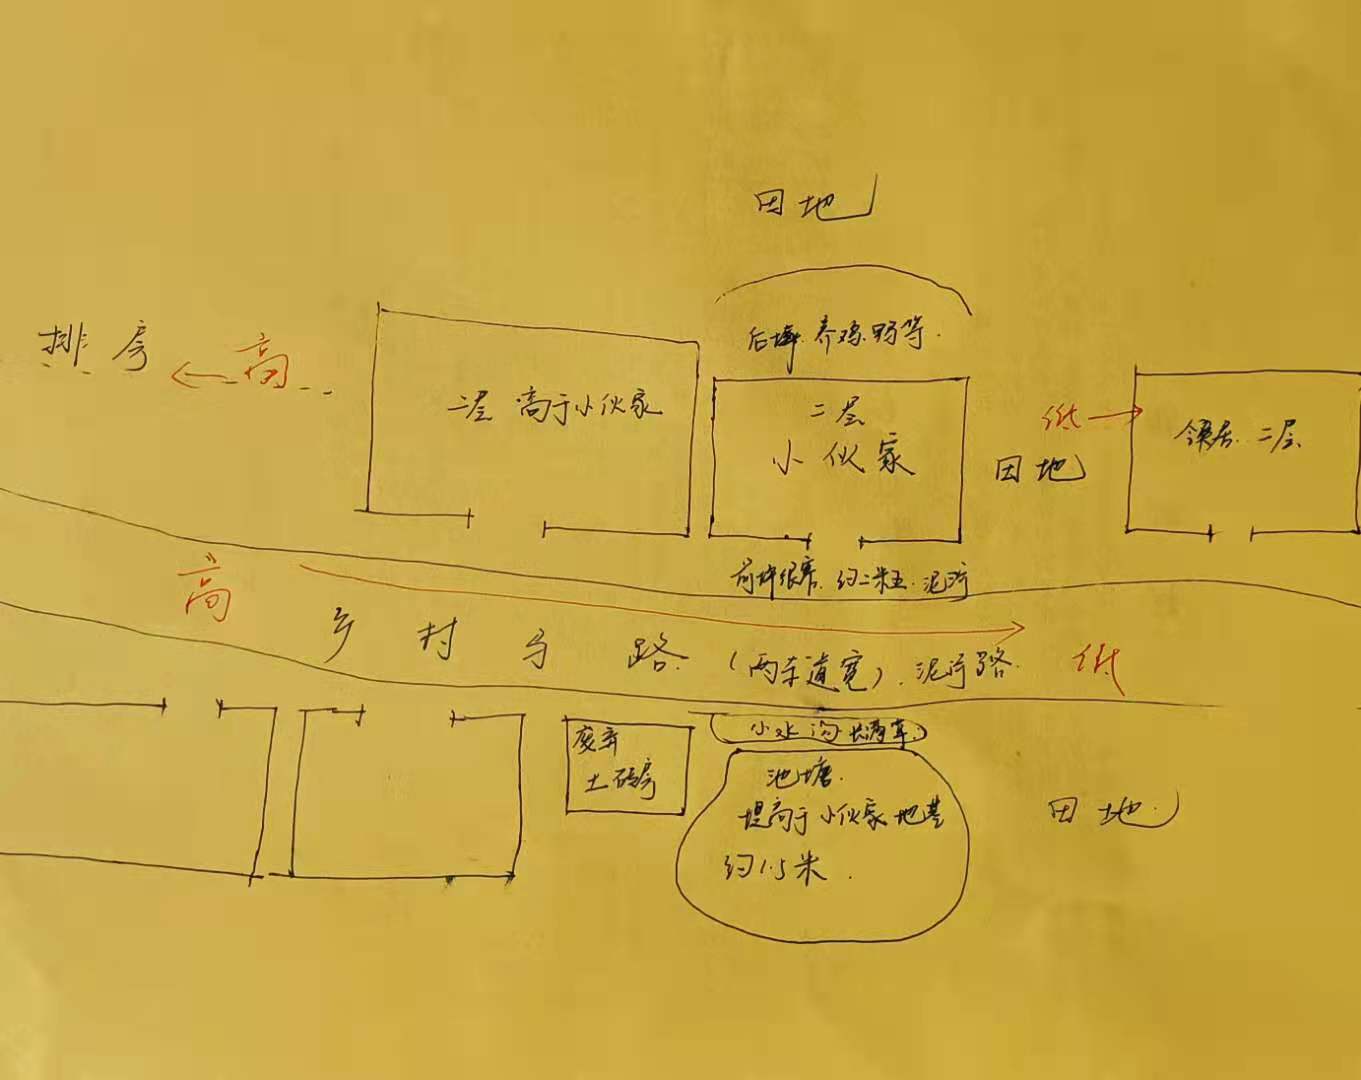 田地
后坪.养鸡.鸭等.
排房
高
二层 高于小伙家
二层
小伙家
低
田地
邻居.二层
前坪很窄.约二米五.泥泞
高
乡村马路.(两车道宽).泥泞路.
低
小水沟长满草.
废弃
土砖房
池塘.
堤高于小伙家地基
约1.5米.
田地.